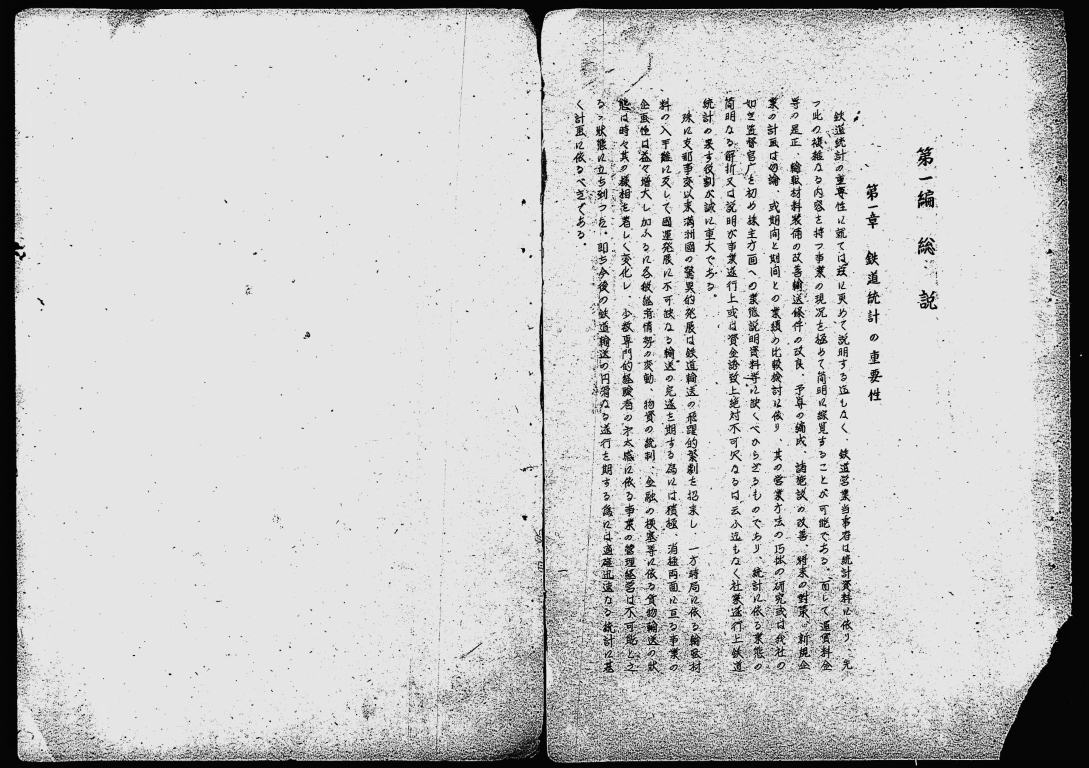 第一編　総説
第一章　鉄道統計の重要性
鉄道統計の重要性に就ては茲に更めて説明する迄もなく、鉄道営業当事者は統計資料に依り、元
つ此の複雑なる内容を持つ事業の現況を極めて簡明に総覧することが可能である。而して運賃料金
等の是正、輸転材料装備の改善輸送条件の改良、予算の編成、諸施設の改善、将来の対策、新規企
業の計画は勿論、或期間と期間との業績の比較検討に依り、其の営業方法の巧拙の研究或は我社の
如き監督官庁を初め株主方面への業態説明資料等に欠くべからざるものであり、統計に依る業態の
簡明なる解析又は説明が事業遂行上或は資金誘致上絶対不可欠なるは云ふ迄もなく社業遂行上鉄道
統計の果す役割が誠に重大である。
殊に支那事変以来満洲国の驚異的発展は鉄道輸送の飛躍的繁劇を招来し、一方時局に依る輸転材
料の入手難に反して国運発展に不可欠なる輸送の完遂を期する為には積極、消極両面に亘る事業の
企画性は益々増大し加ふるに各般経済情勢の変動、物資の統制、金融の梗塞等に依る貨物輸送の状
態は時々其の様相を著しく変化し、少数専門的経験者の　　感に依る事業の管理経営は不可能とな
る、状態に立ち到つた。即ち今後の鉄道輸送の円滑なる遂行を期する為には適確迅速なる統計に基
く計画に依るべきである。